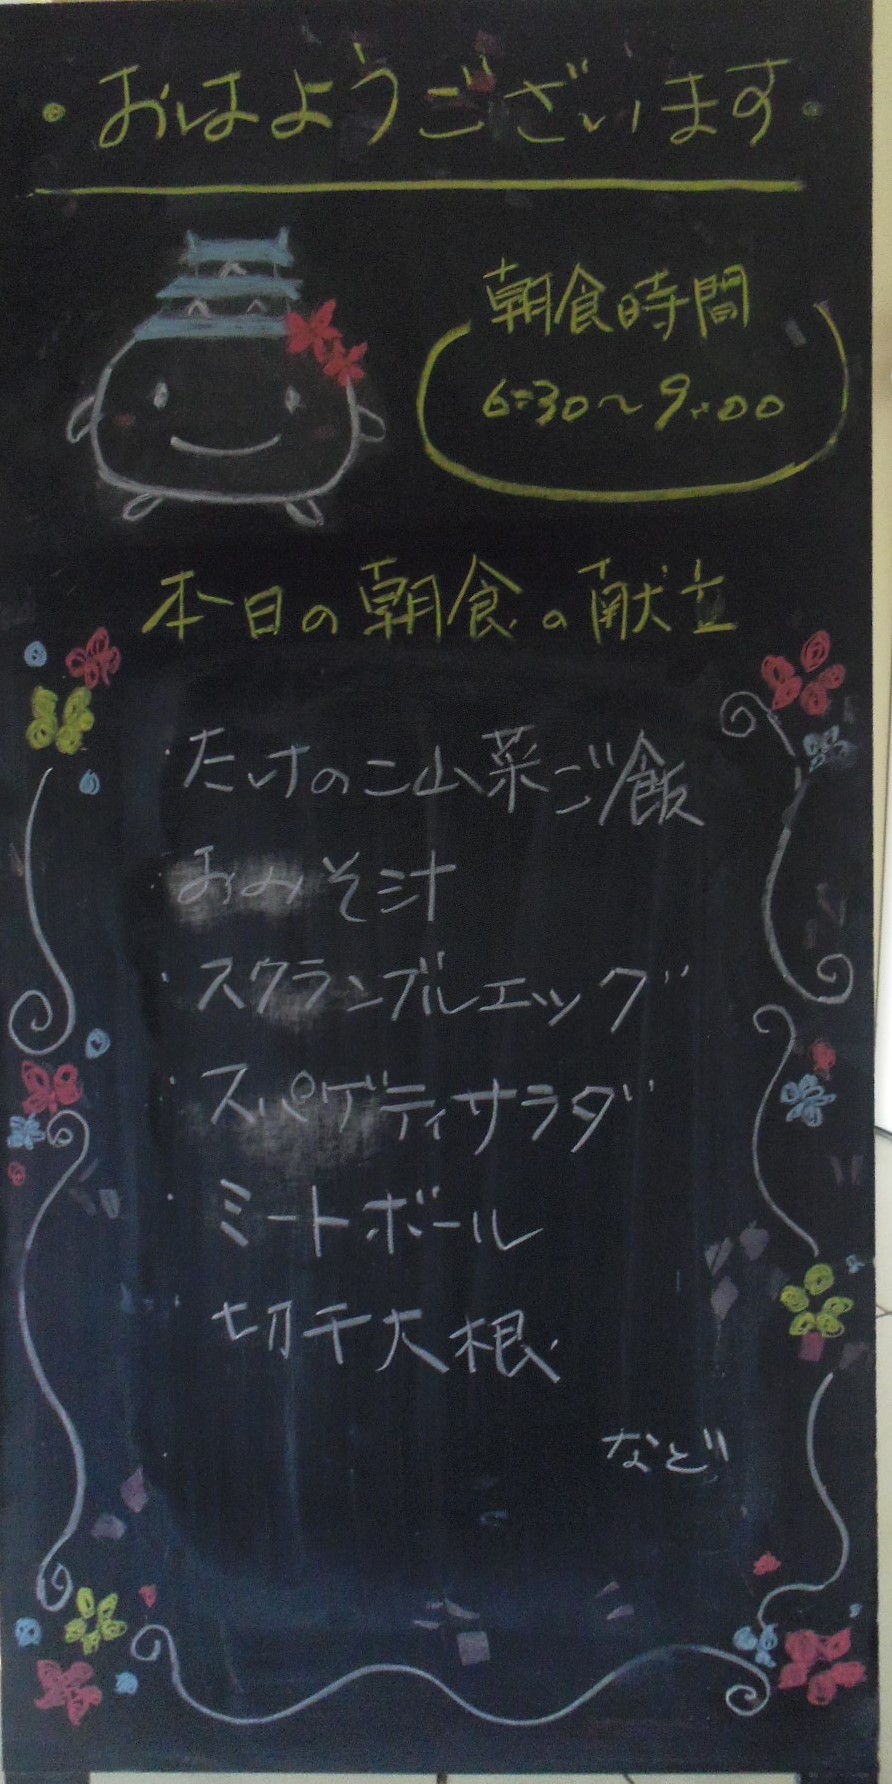 ・おはようございます・
朝食時間
6:30〜9:00
本日の朝食の献立
・たけのこ山菜ご飯
おみそ汁
・スクランブルエッグ
・スパゲティサラダ
・ミートボール
切干大根
など